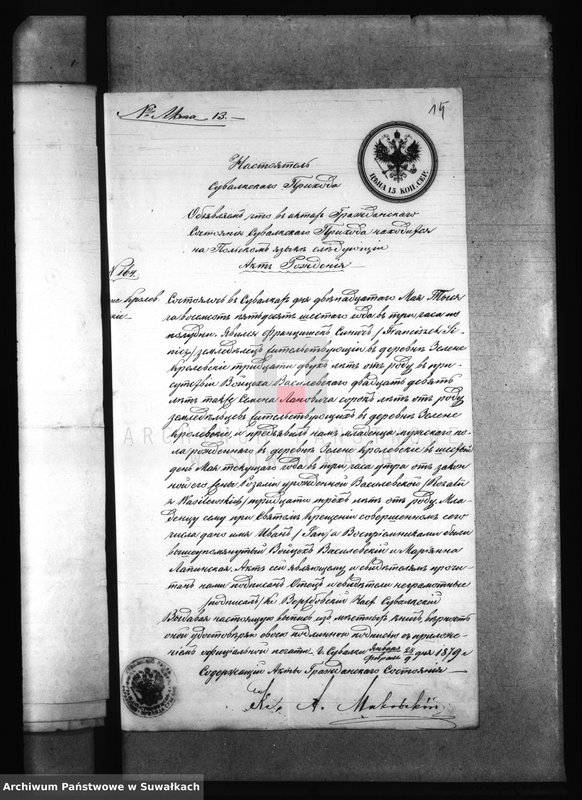 № Акта 13.
15
Настоятель
Сувалкскаго Прихода
ЦѢНА 15 КОП. СЕР.
Объявляю, что въ актахъ Гражданскаго
Состоянія Сувалкскаго Прихода находится
на Польскомъ языкѣ слѣдующій
Актъ Рожденія
164.
Состоялось въ Сувалкахъ дня двѣнадцатаго Мая Тыся
ча восемсотъ пятьдесятъ шестаго года въ три часа по
полудни. Явился Францишекъ Синицъ / Franciszek Si-
nicz / земледѣлецъ жительствующій въ деревнѣ Зелене
Кролевске тридцати двухъ лѣтъ отъ роду въ при-
сутствіи Войцеха Василевскаго двадцать девять
лѣтъ также Семена Лановича сорокъ лѣтъ отъ роду
земледѣльцевъ жительствующихъ въ деревнѣ Зелене
Кролевске, и предъявилъ намъ младенца мужескаго по-
ла рожденнаго въ деревнѣ Зелене Кролевске въ шестый
день Мая текущаго года въ три часа утра отъ закон
ной его жены Розаліи урожденной Василевской / Rozalii
z Wasilewskich / тридцати трехъ лѣтъ отъ роду. Мла-
денцу сему при Святомъ Крещеніи совершенномъ сего
числа дано имя Иванъ / Jan / а Воспріемниками были
вышеупомянутый Войцехъ Василевскій и Маріанна
Лапинская. Актъ сей являющему и свидѣтелямъ прочи-
танъ нами подписанъ Отецъ и свидѣтели неграмотные
/ подписалъ / Кс. Наст. Сувалкскій
Выдавая настоящую выпись изъ мѣстныхъ книгъ вѣрность
оной удостовѣряю своею подлинною подписью съ приложе-
ніемъ официальной печати г. Сувалки Января 28 / Февраля 9 дня 1879 г.
Содержащій Акты Гражданскаго Состоянія
Кс. А. Маковскій
Archiwum Państwowe w Suwałkach